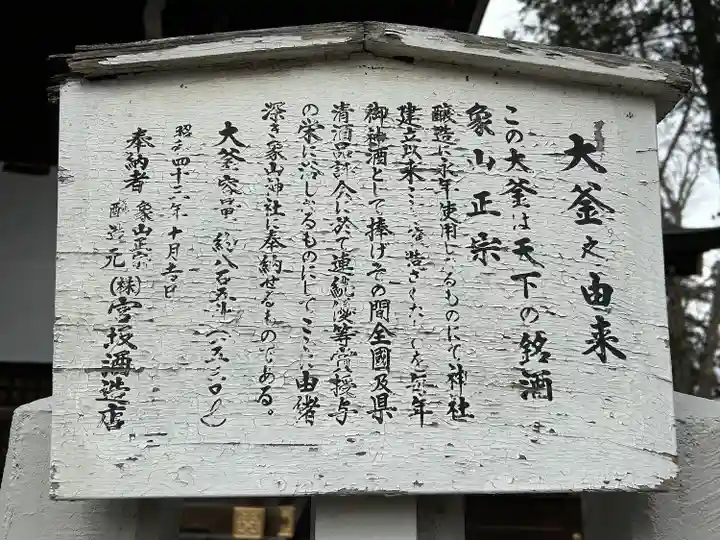 大釜之由来
この大釜は天下の銘酒
象山正宗
醸造に永年使用したるものにて神社
建立以来ここに醸造されたしを毎年
御神酒として捧げその間全國及県
清酒品評会に於て連続優等賞授与
の栄に浴したるものにしてここに由緒
深き象山神社に奉納せるものである。
大釜容量 約八百五升
昭和四十二年十月
奉納者 象山正宗
醸造元 (株)宮坂酒造店